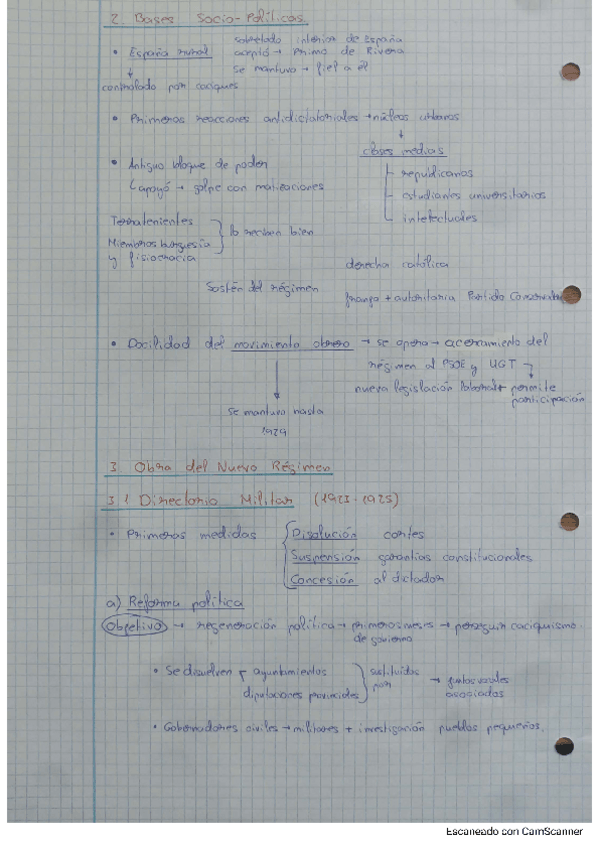 2. Bases Socio-Políticas.
sobretodo interior de España
• España rural aceptó → Primo de Rivera
se mantuvo → fiel a él
controlado por caciques
• Primeras reacciones antidictatoriales → núcleos urbanos
clases medias
• Antiguo bloque de poder
republicanos
apoyó → golpe con matizaciones
estudiantes universitarios
intelectuales
Terratenientes
lo reciben bien
Miembros burguesía
y fisiocracia
derecha católica
Sostén del régimen
franja + autoritaria Partido Conservador
• Docilidad del movimiento obrero → se opera → acercamiento del
régimen al PSOE y UGT
nueva legislación laboral + permite
participación
se mantuvo hasta
1929
3. Obra del Nuevo Régimen
3.1 Directorio Militar (1923-1925)
• Primeras medidas Disolución cortes
Suspensión garantías constitucionales
Concesión al dictador
a) Reforma política
Objetivo → regeneración política → primeros meses → perseguir caciquismo.
de gobierno
• Se disuelven ayuntamientos sustituidos → juntas vocales
diputaciones provinciales por asociados
• Gobernadores civiles → militares + investigación pueblos pequeños.
Escaneado con CamScanner